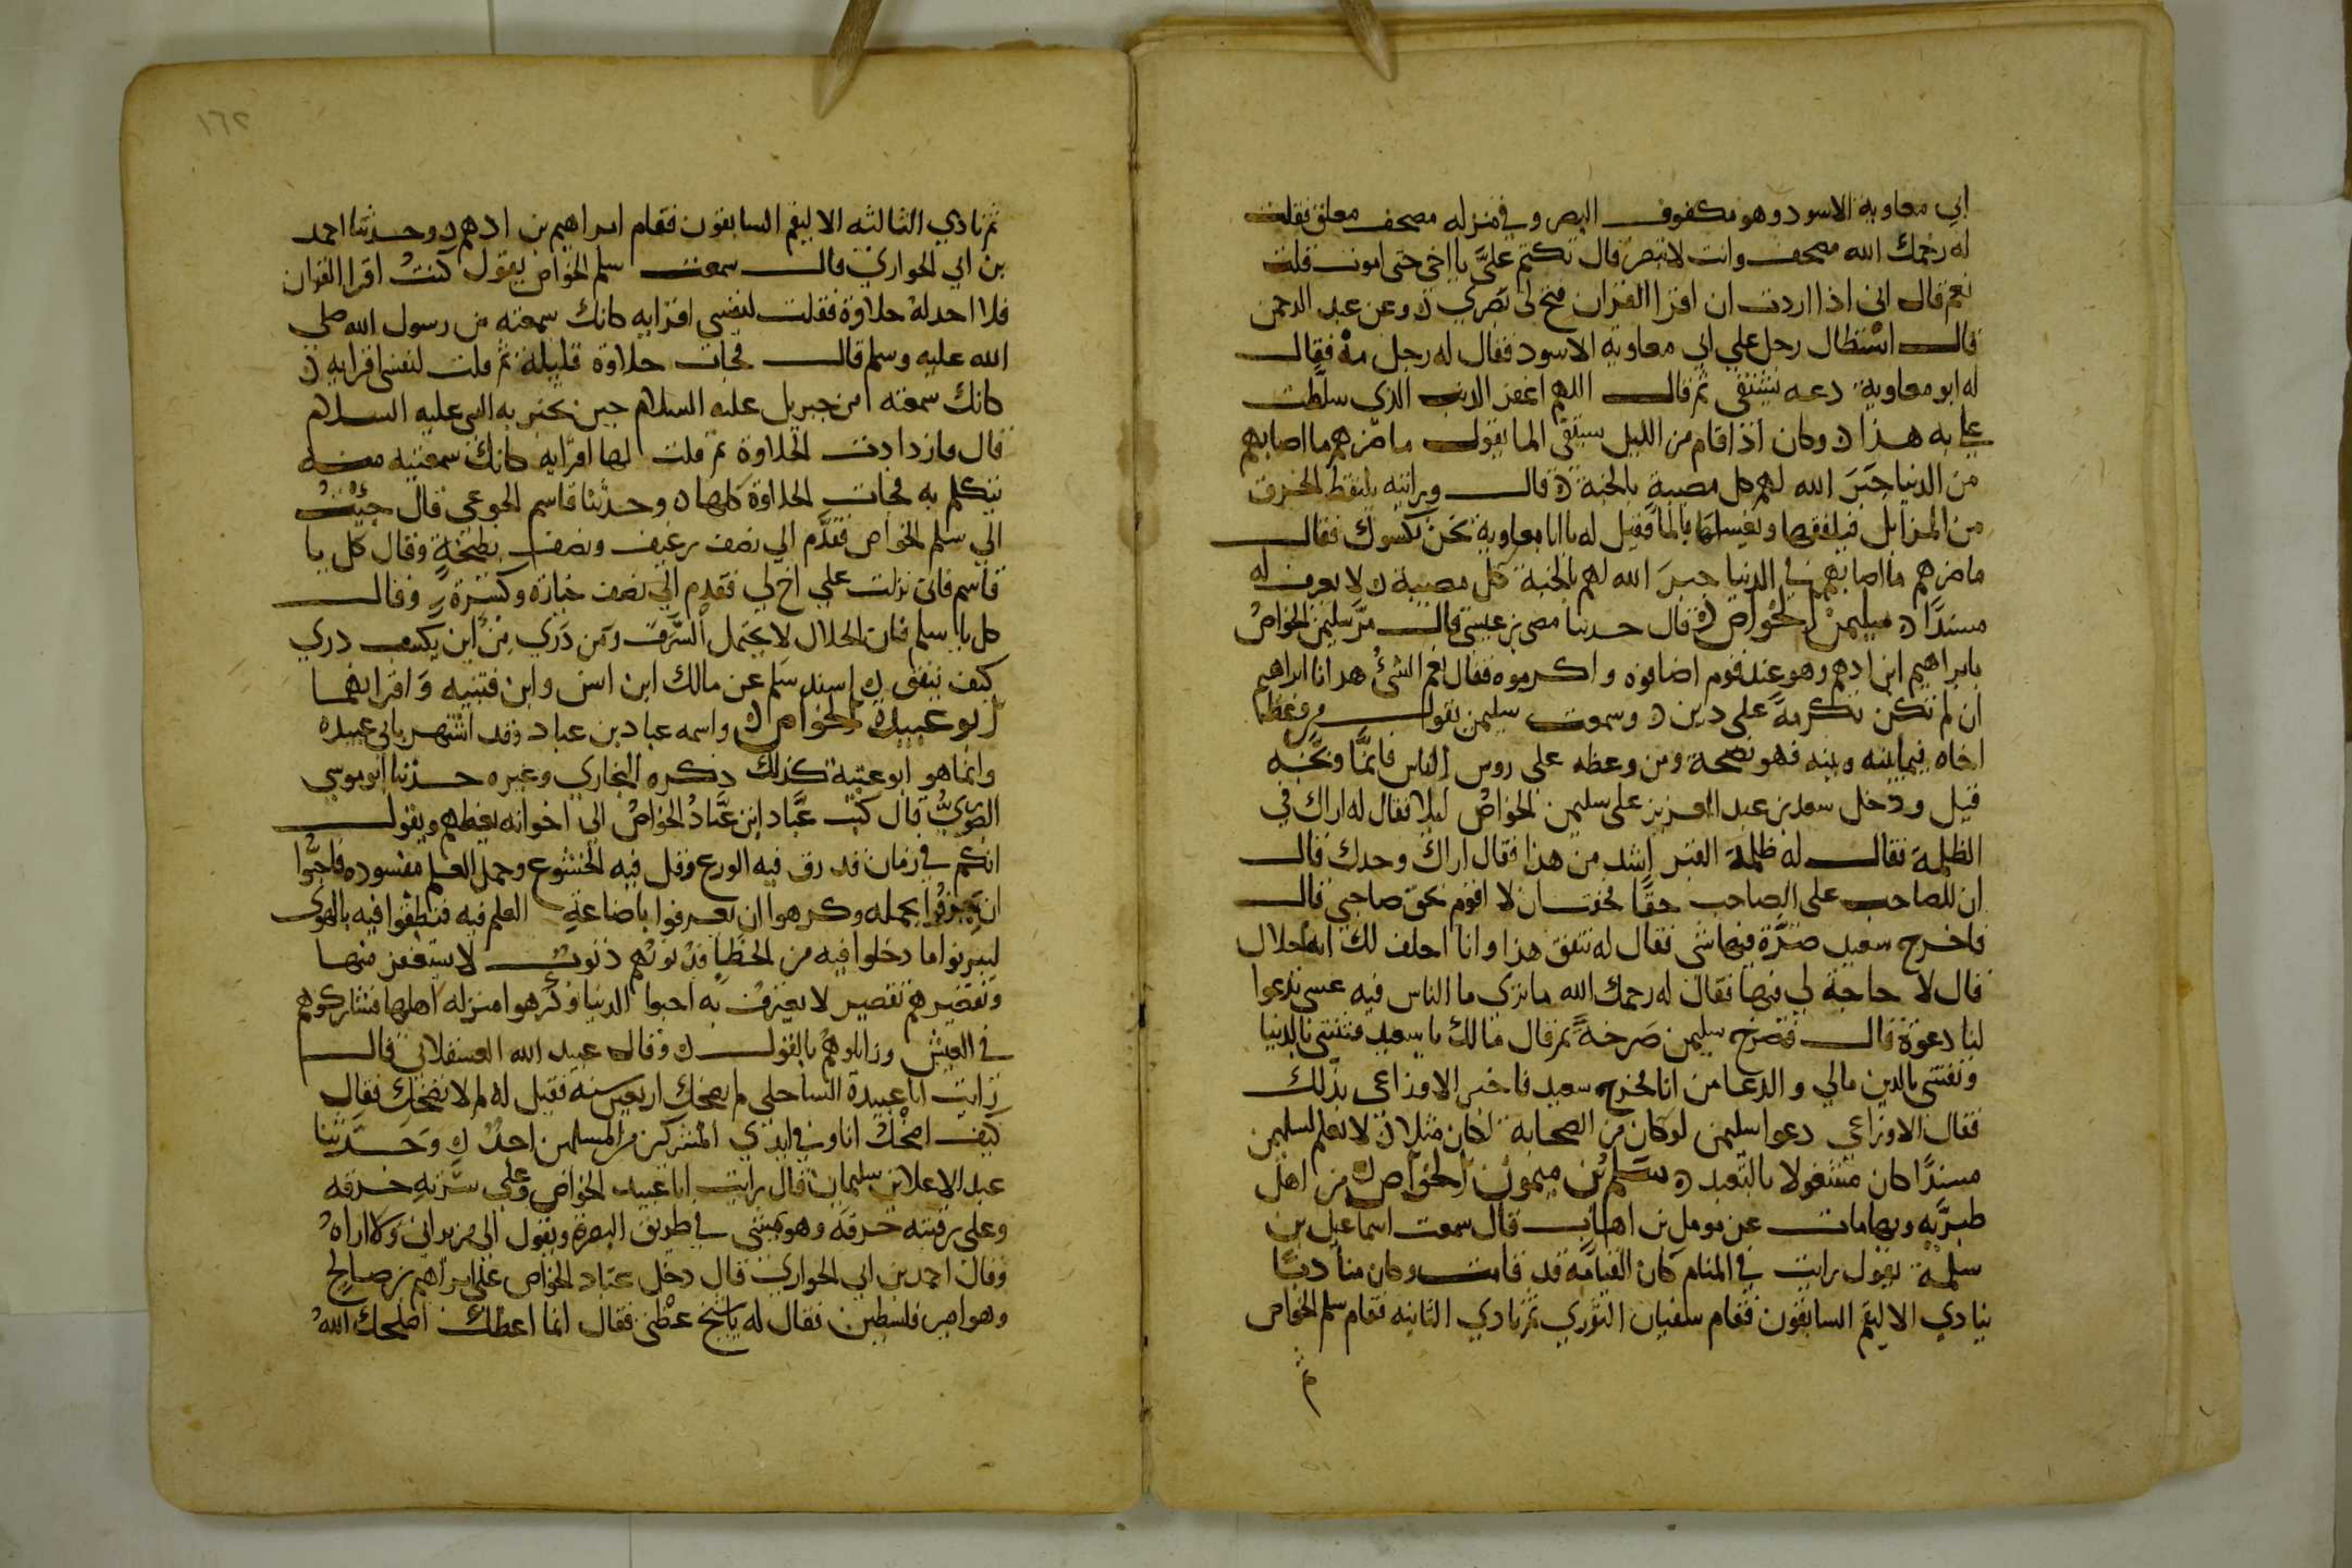 ابي معاوية الاسود وهو مكفوف البصر وفي منزله مصحف معلق فقلت
له رحمك الله مصحف وانت لا تبصر قال تكتم عليَّ يا اخي حتى اموت قلت
نعم قال اني اذا اردت ان اقرا القران فتح لي بصري ن وعن عبد الرحمن
قال استطال رجل علي ابي معاوية الاسود فقال له رجل مه فقال
له ابو معاوية دعه يشتفي ثم قال اللهم اغفر الذنب الذي سلطت
علي به هذا ن وكان اذا قام من الليل يستقي الما يقول ما ضرهم ما اصابهم
من الدنيا جبَرَ الله لهم كل مصيبة بالجنة ن قال ورايته يلتقط الخرق
من المزابل فيلفقها ويغسلها بالما فقيل له يا ابا معاوية نحن نكسوك فقال
ما ضرهم ما اصابهم في الدنيا جبرَ الله لهم بالجنة كل مصيبة ن لا يعرف له
مسندًا ن سليمن الخواص ن قال حدثنا مضى بن عيسى قال مرَّ سليمن الخواصُ
بابراهيم ابن ادهم وهو عند قوم اضافوه واكرموه فقال نعم الشئُ هذا يا ابراهيم
ان لم تكن تكرمةً على دين ن وسمعت سليمن يقول من وعظ
اخاه فيما بينه وبينه فهو نصيحة ومن وعظه على روس الناس فانمَّا وبَّخه
قيل ودخل سعيد بن عبد العزيز على سليمن الخواصُ ليلا فقال له اراك في
الظلمة فقال له ظلمة القبر اشد من هذا فقال اراك وحدك قال
ان للصاحب على الصاحب حقًا فخفت ان لا اقوم بحق صاحبي قال
فاخرج سعيد صُرَّة فيها شي فقال له تنفق هذا وانا احلف لك انه حلال
قال لا حاجة لي فيها فقال له رحمك الله ما ترى ما الناس فيه عسى تدعوا
لنا دعوة قال فصرخ سليمن صَرخةً ثم قال مالك يا سعيد فتنتني بالدنيا
وتفتنني بالدين مالي والدعا من انا فخرج سعيد فاخبر الاوزاعى بذلك
فقال الاوزاعي دعوا سليمن لو كان من الصحابة لكان مثلا ن لا نعلم لسليمن
مسندًا كان مشغولا بالتعبد ن سَلم بْن ميمون الخواص ن من اهل
طبريَّه وبها مات عن مومل بن اهاب قال سمعت اسماعيل بن
سلمة يقول رايت في المنام كان القيامه قد قامت وكان مناديًا
ينادي الا ليقم السابقون فقام سفيان الثوري ثم نادي الثانيه فقام سلم الخواص
ثم
١٦٢
ثم نادي الثالثه الا ليقم السابقون فقام ابراهيم بن ادهم ن وحدثنا احمد
بن ابي الحواري قال سمعت سلم الخواص يقول كنتُ اقرا القران
فلا اجد لهُ حلاوة فقلت لنفسي اقرايه كانك سمعته من رسول الله صلى
الله عليه وسلم قال فجات حلاوة قليلة ثم قلت لنفسي اقرايه ن
كانك سمعته من جبريل عليه السلام حين يخبر به النبي عليه السلام
قال فازدادت الحلاوة ثم قلت لها اقرايه كانك سمعتيه منه
يتكلم به فجات الحلاوة كلها ن وحدثنا قاسم الجوعى قال جِئْتُ
الي سلم الخواص فقدَّم الي نصف رغيف ونصف بطيخةٍ وقال كل يا
قاسم فاني نزلت علي اخ لي فقدم الي نصف خيارة وكسْرة وقال
كل يا سلم فان الحلال لا يحتمل السَّرَف ومن دَري من اين يكسب دري
كيف ينفق ن اسند سَلم عن مالك ابن انس وابن عيينه وَاقرانهما
ابو عبيدة الخواص ن واسمه عباد بن عباد وقد اشتهر بابي عبيدة
وانما هو ابو عتبة كذلك ذكره البخاري وغيره حدثنا ابو موسي
الصوري قال كتب عبَّاد ابن عبَّاد الخواصُ الي اخوانه يعظهم ويقول
انكم في زمان قد رق فيه الورع وقل فيه الخشوع وحمل العلم مفسوده فاحبُّوا
ان يعرفوا بحمله وكرهوا ان يعرفوا باضاعةِ العلم فيه فنطقوا فيه بالهوى
ليزينوا ما دخلوا فيه من الخطا فذنوبهم ذنوب لا يستغفر منها
وتقصيرهم تقصير لا يعترف به احبوا الدنيا وكرهوا منزله اهلها فشاركوهم
في العيش وزايلوهم بالقول ن وقال عبيد الله العسقلاني قال
رايت ابا عبيدة الساحلي لم يضحك اربعين سنة فقيل له لم لا تضحك فقال
كيف اضحك انا وفي ايدي المشركين من المسلمين احدٌ ن وَحَدَّثنا
عبد الاعلا بن سليمان قال رايت ابا عبيد الخواص وعلي سُرّتهِ خرقه
وعلى رقبته خرقه وهو يمشي في طريق البصرة ويقول الي من يراني ولا اراهُ
وقال احمد بن ابي الحواري قال دخل عباد الخواص علي ابراهيم بن صالح
وهو امير فلسطين فقال له يا شيخ عظني فقال انما اعظك اصلحك اللهُ